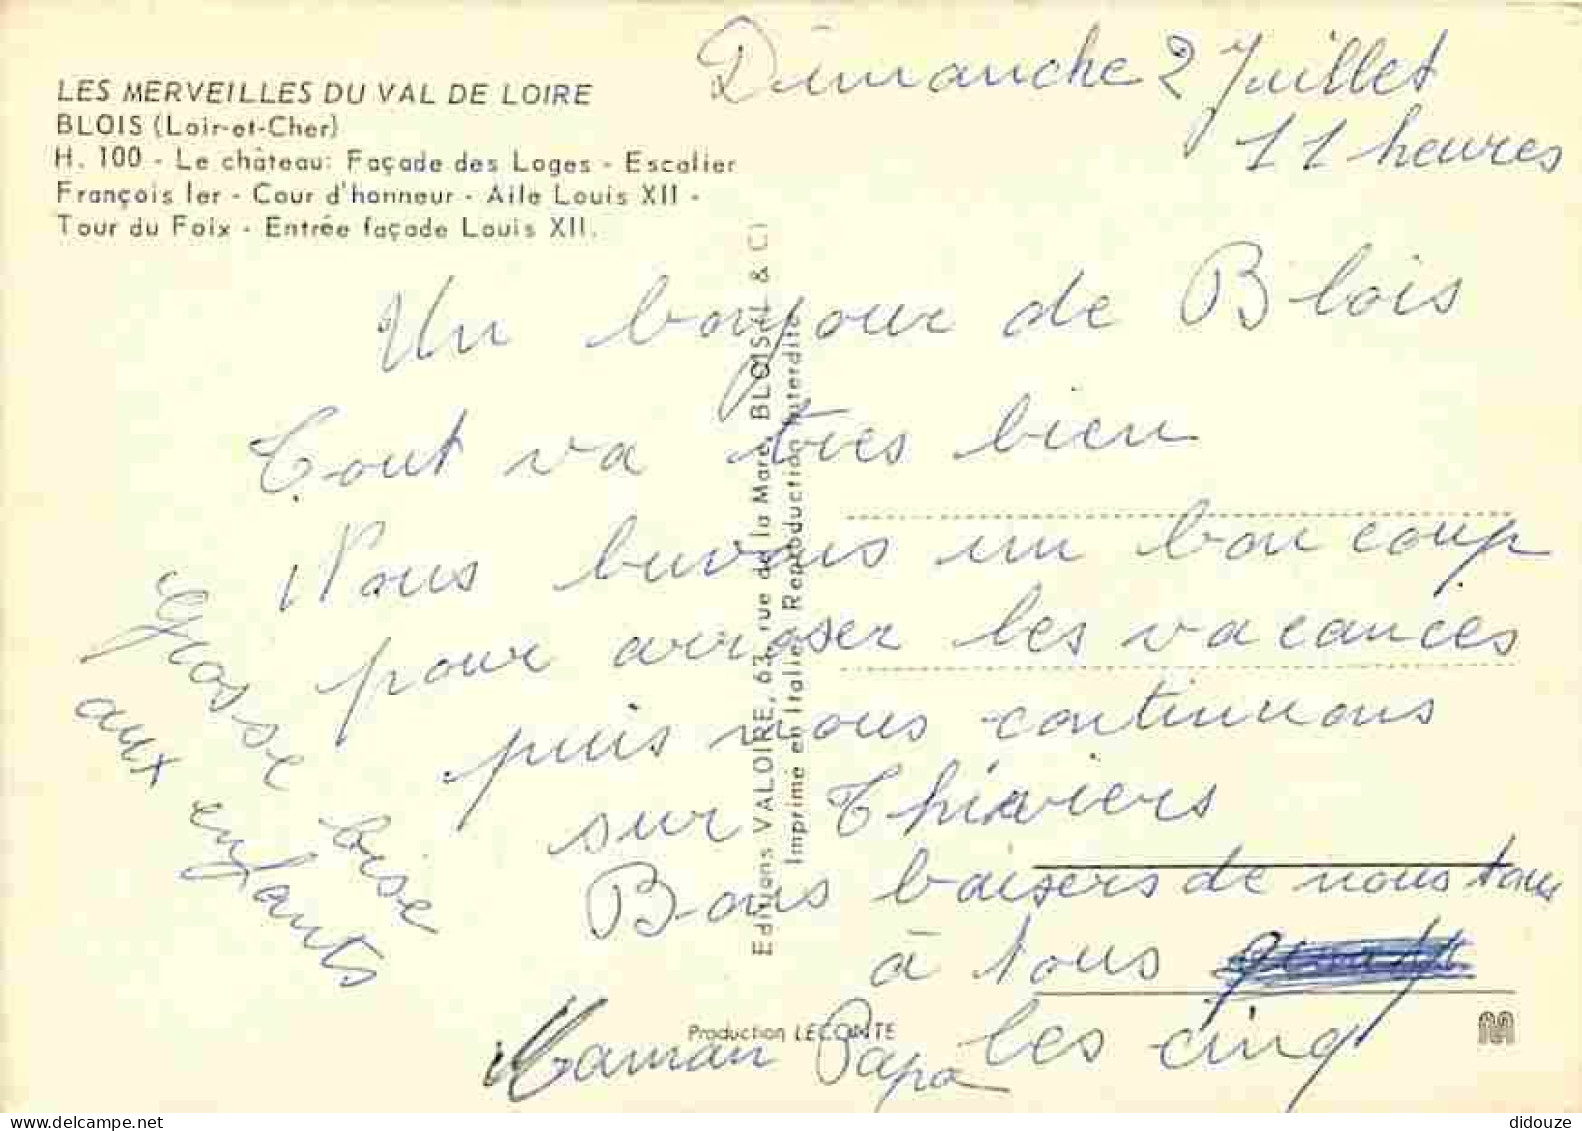 LES MERVEILLES DU VAL DE LOIRE
BLOIS (Loir-et-Cher)
H. 100 - Le château: Façade des Loges - Escalier
François Ier - Cour d'honneur - Aile Louis XII -
Tour du Foix - Entrée façade Louis XII.
Dimanche 2 Juillet
11 heures
Un bonjour de Blois
Tout va tres bien
Nous buvons un bon coup
pour arroser les vacances
puis nous continuons
sur Thiviers
Bons baisers de nous tous
à tous
les cinq
Maman Papa
Grosse bise
aux enfants
Editions VALOIRE, 63, rue de la Mare, BLOIS-L & C)
Imprimé en Italie - Reproduction interdite
Production LECONTE
didouze